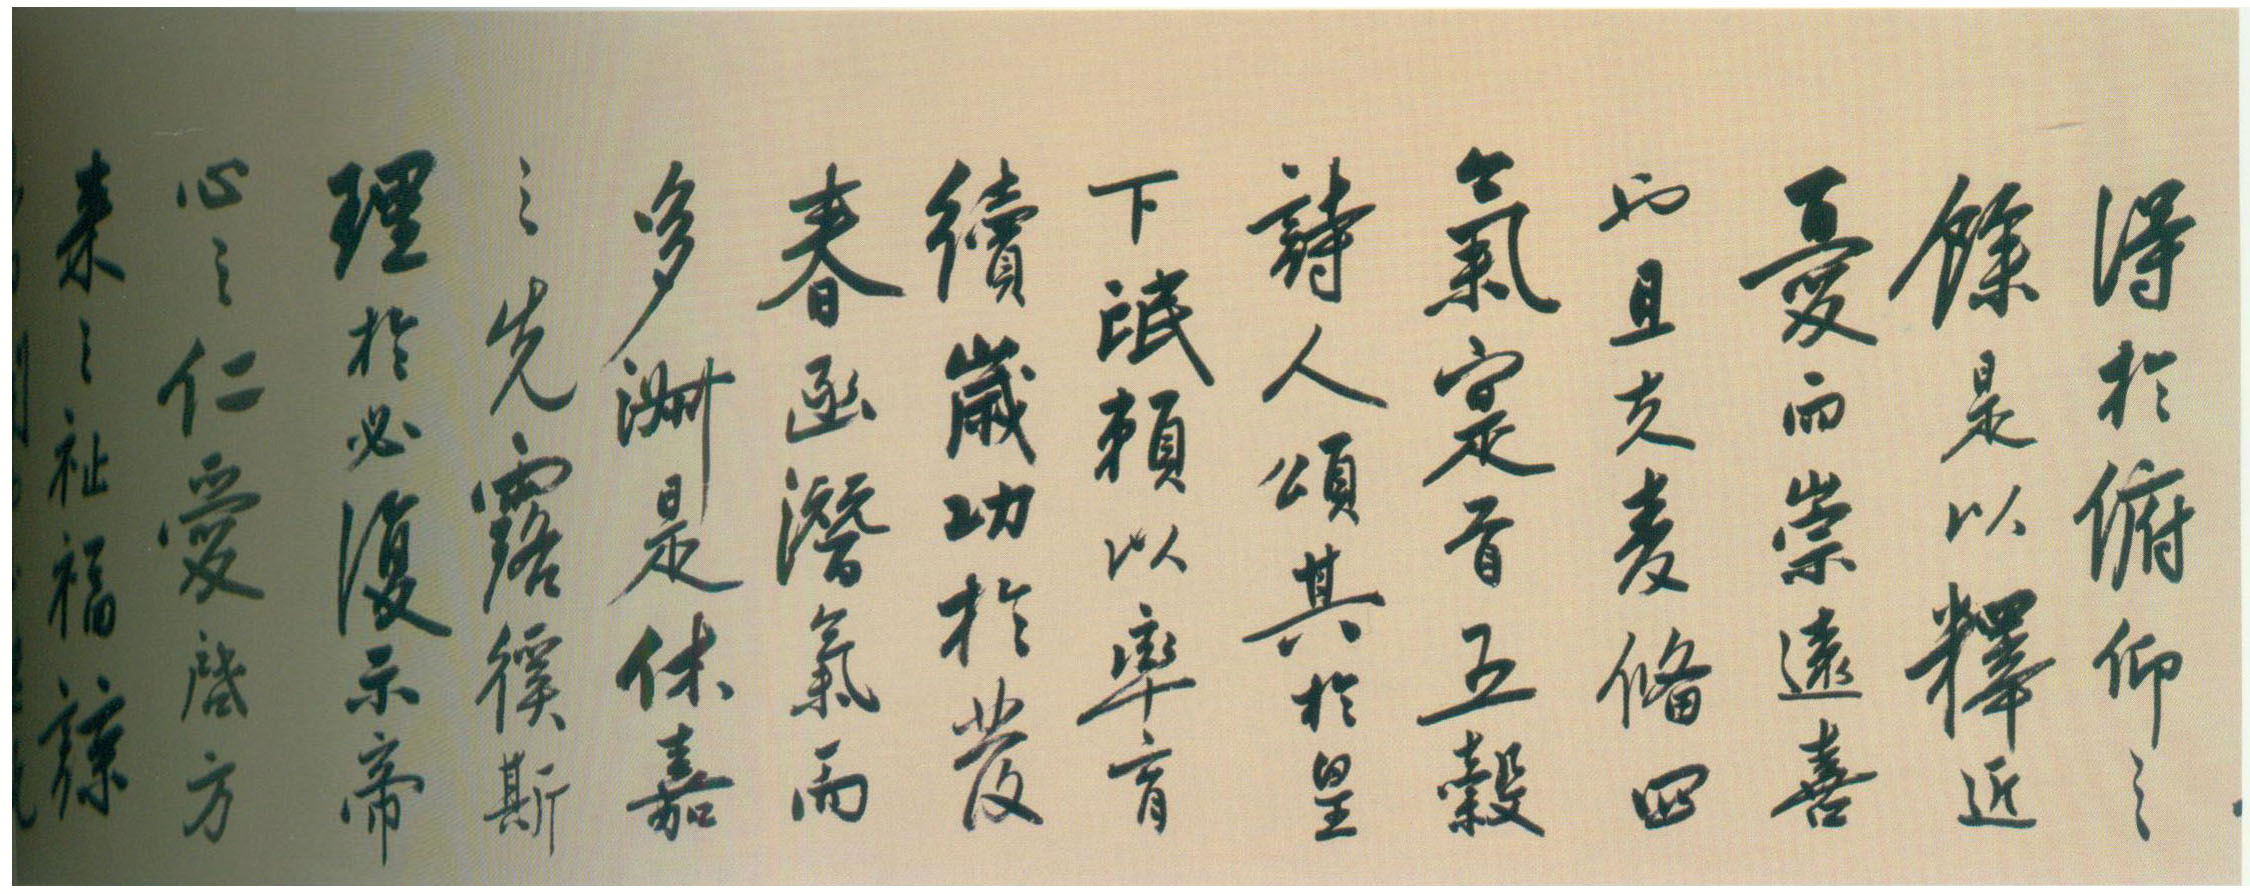 得於俯仰之
餘是以釋近
憂而崇遠喜
也且夫麦備四
氣寔首五穀
詩人頌其於皇
下氓賴以率育
續歲功於發
春函潛氣而
多渊是休嘉
之先露徯斯
理於必復示帝
心之仁愛啟方
来之祉福諒